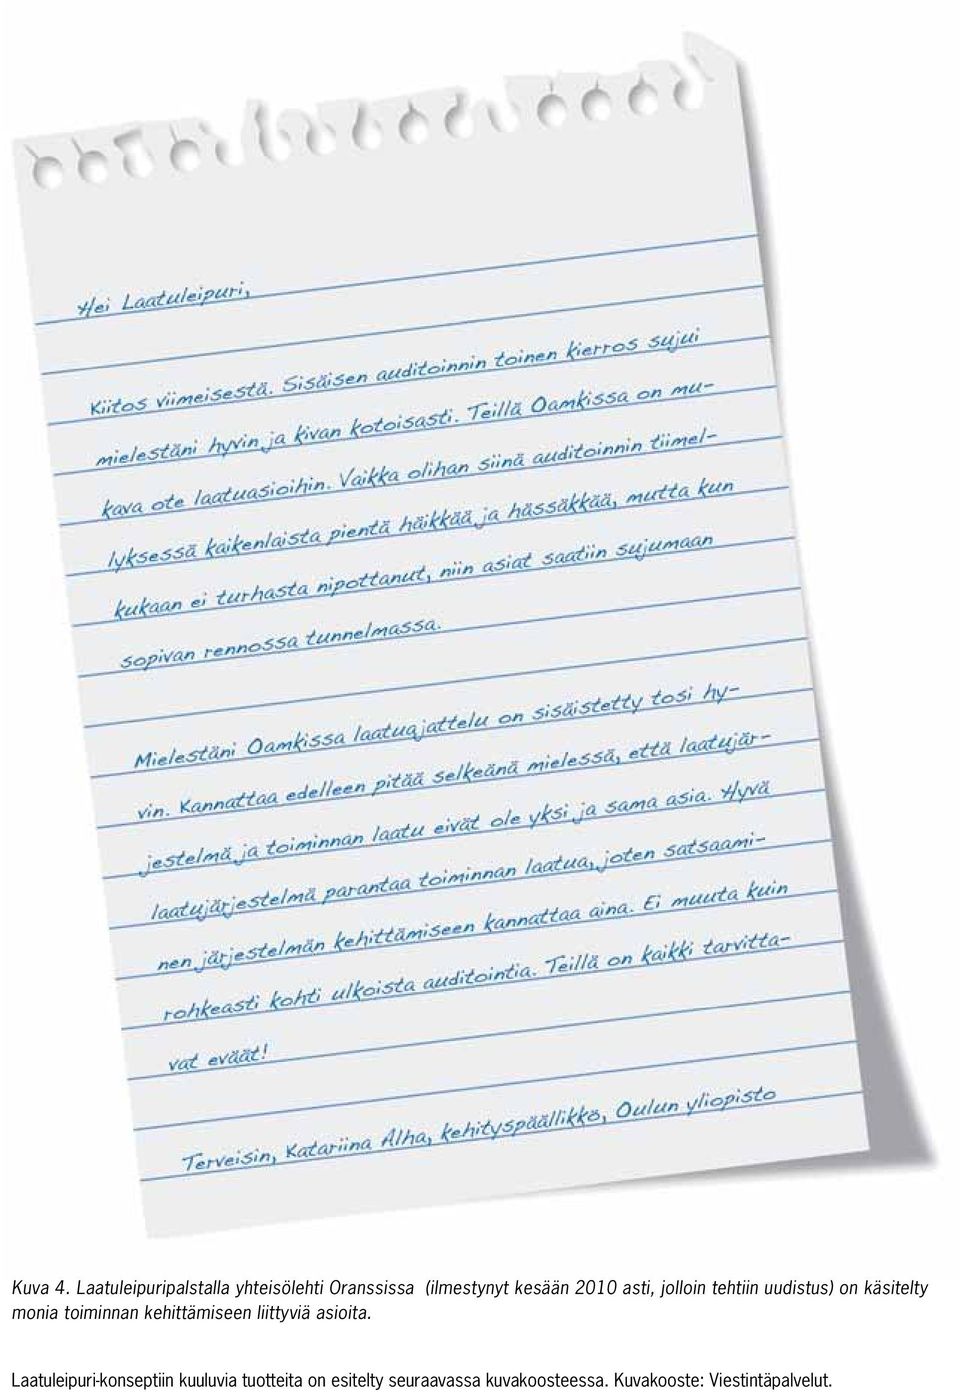 Hei Laatuleipuri,
Kiitos viimeisestä. Sisäisen auditoinnin toinen kierros sujui
mielestäni hyvin ja kivan kotoisasti. Teillä Oamkissa on mu-
kava ote laatuasioihin. Vaikka olihan siinä auditoinnin tiimel-
lyksessä kaikenlaista pientä häikkää ja hässäkkää, mutta kun
kukaan ei turhasta nipottanut, niin asiat saatiin sujumaan
sopivan rennossa tunnelmassa.
Mielestäni Oamkissa laatuajattelu on sisäistetty tosi hy-
vin. Kannattaa edelleen pitää selkeänä mielessä, että laatujär-
jestelmä ja toiminnan laatu eivät ole yksi ja sama asia. Hyvä
laatujärjestelmä parantaa toiminnan laatua, joten satsaami-
nen järjestelmän kehittämiseen kannattaa aina. Ei muuta kuin
rohkeasti kohti ulkoista auditointia. Teillä on kaikki tarvitta-
vat eväät!
Terveisin, Katariina Alha, kehityspäällikkö, Oulun yliopisto
Kuva 4. Laatuleipuripalstalla yhteisölehti Oranssissa (ilmestynyt kesään 2010 asti, jolloin tehtiin uudistus) on käsitelty
monia toiminnan kehittämiseen liittyviä asioita.
Laatuleipuri-konseptiin kuuluvia tuotteita on esitelty seuraavassa kuvakoosteessa. Kuvakooste: Viestintäpalvelut.